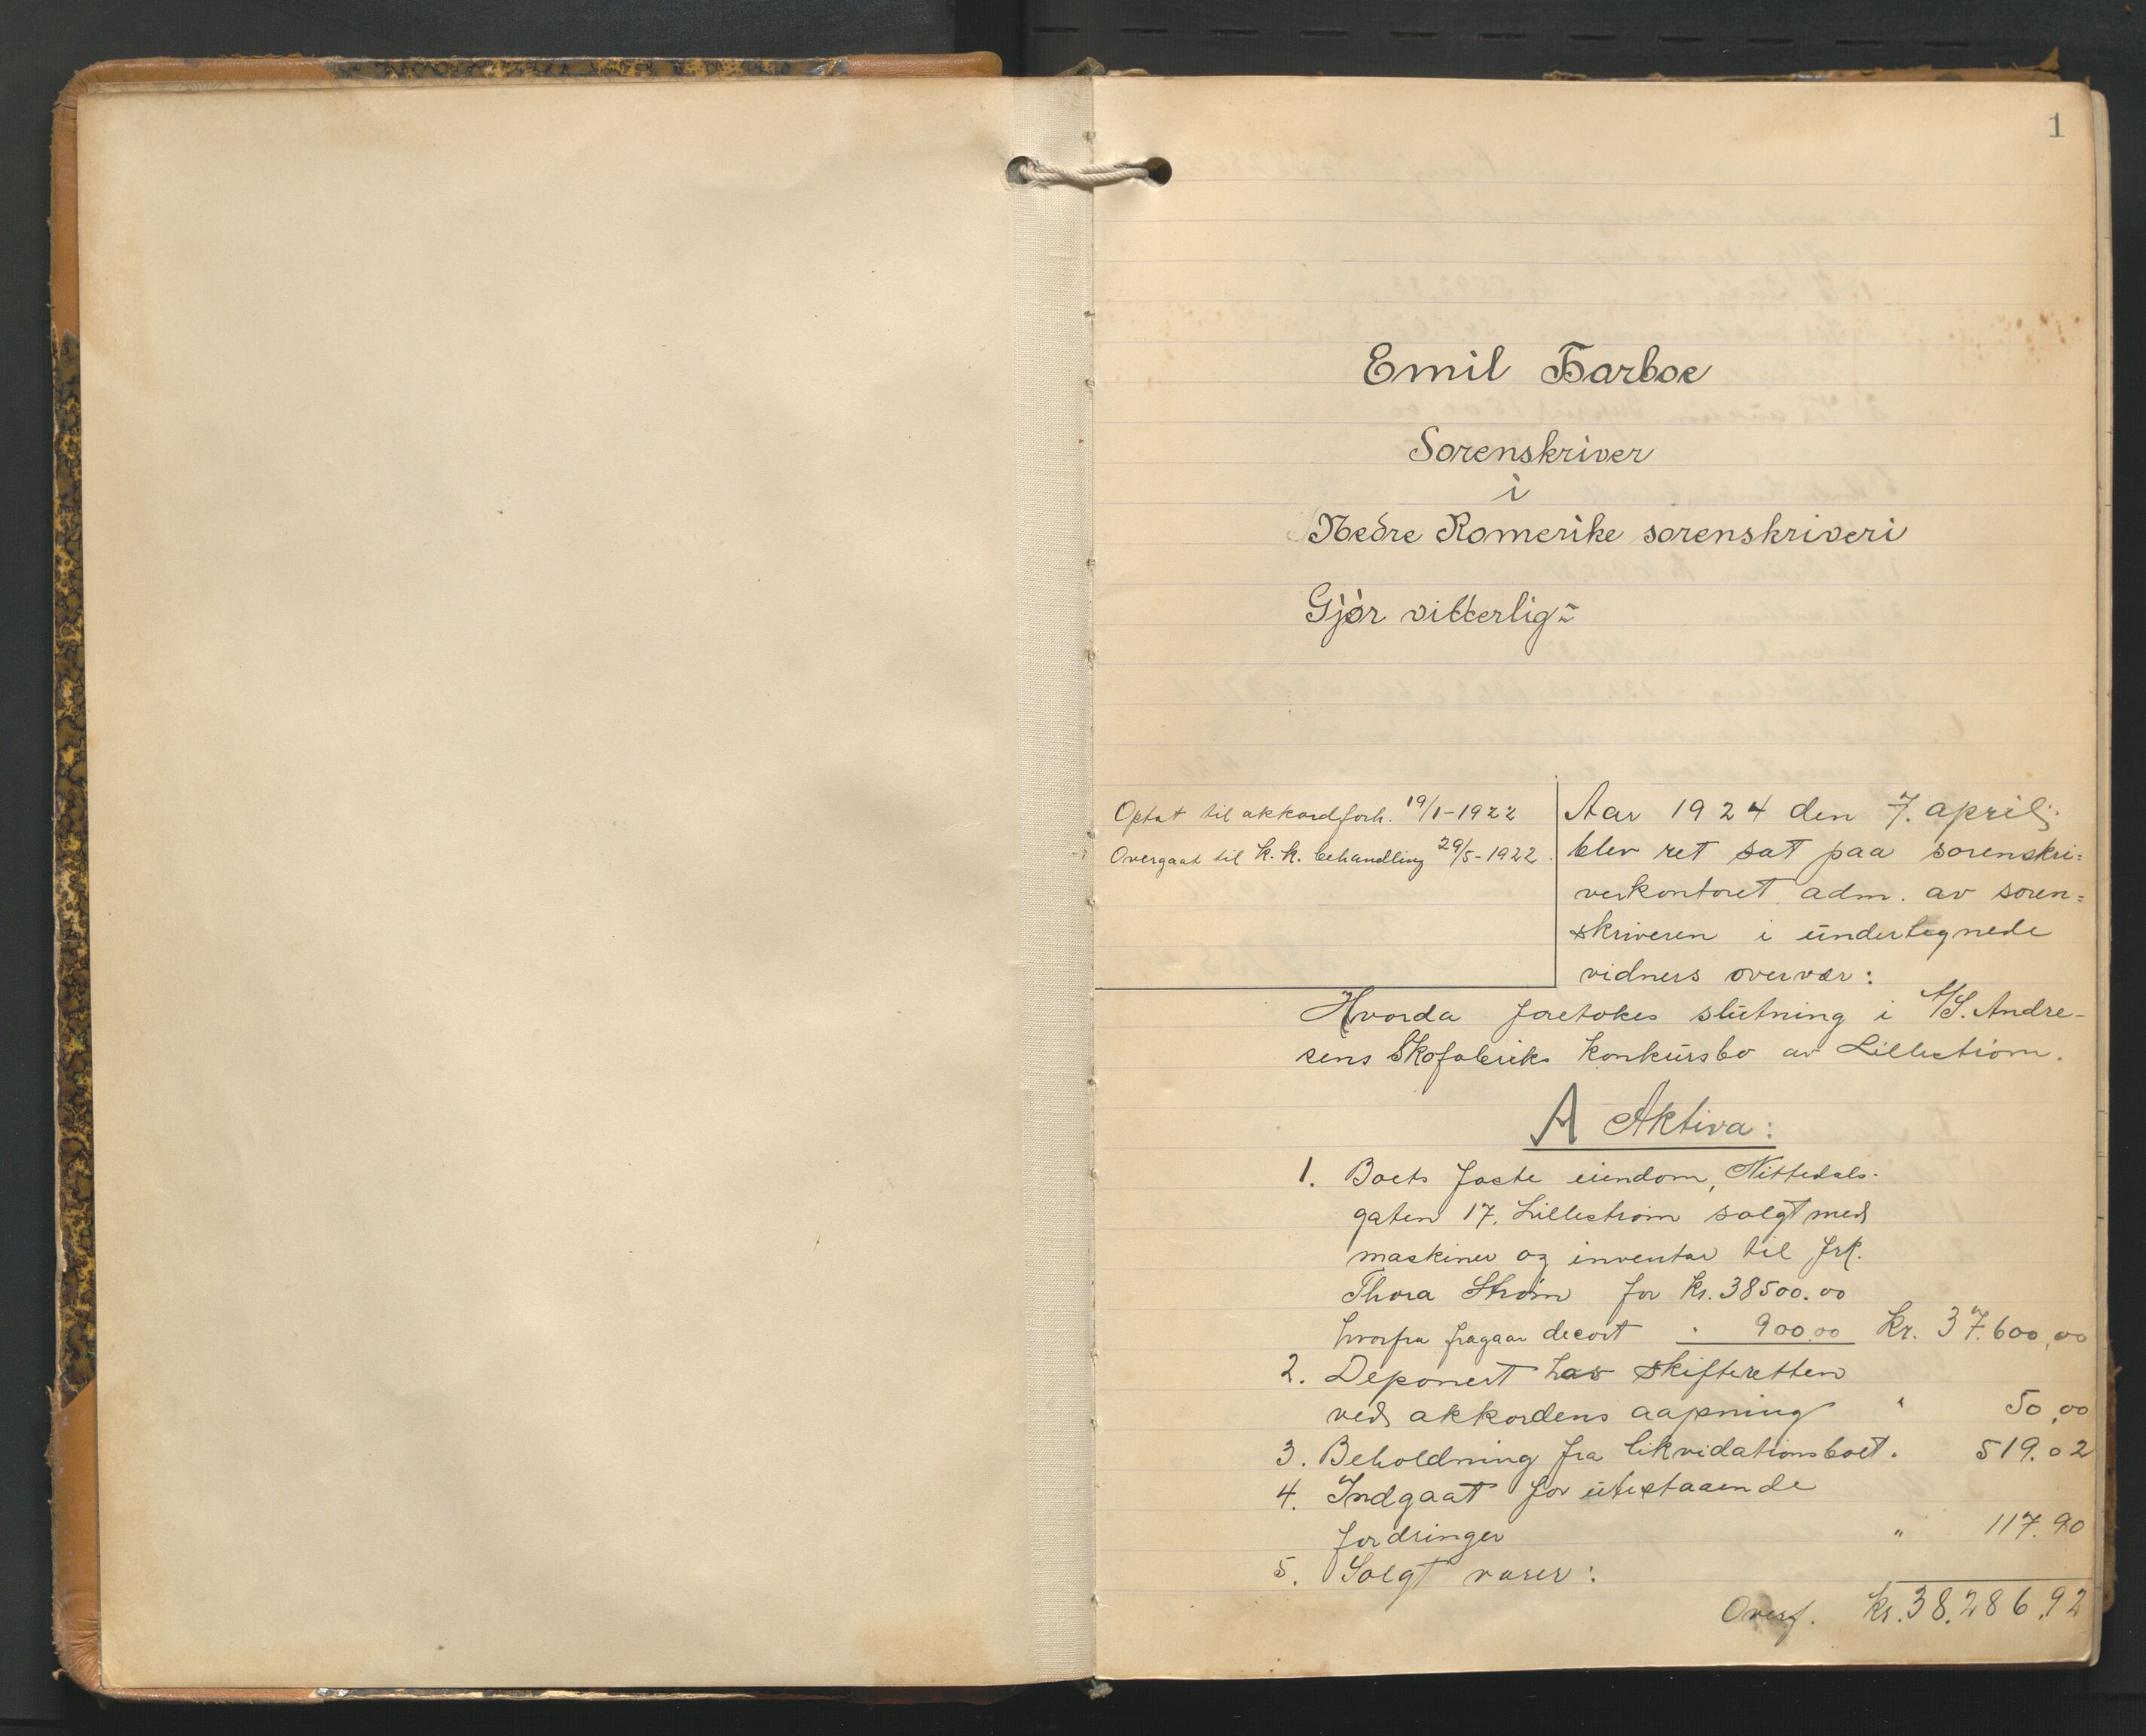 1
Emil Barboe
Sorenskriver
i
Nedre Romerike sorenskriveri
Gjør vitterlig:
Optat til akkordforh. 19/1-1922
Overgaat til k.k. behandling 29/5-1922.
Aar 1924 den 7. april
blev ret sat paa sorenskri=
verkontoret adm. av soren=
skriveren i undertegnede
vidners overvær:
Hvorda foretokes slutning i A/S. Andre-
sens Skofabriks konkursbo av Lillestrøm.
A Aktiva:
1. Boets faste eiendom, Nittedals-
gaten 17, Lillestrøm solgt med
maskiner og inventar til frk.
Thora Strøm for kr. 38500.00
hvorfra fragaar decort " 900.00 Kr. 37.600,00
2. Deponert hos skifteretten
ved akkordens aapning " 50,00
3. Beholdning fra likvidationsboet. 519.02
4. Indgaat for utestaaende
fordringer " 117.90
5. Solgt varer:
Overf. kr. 38.286,92